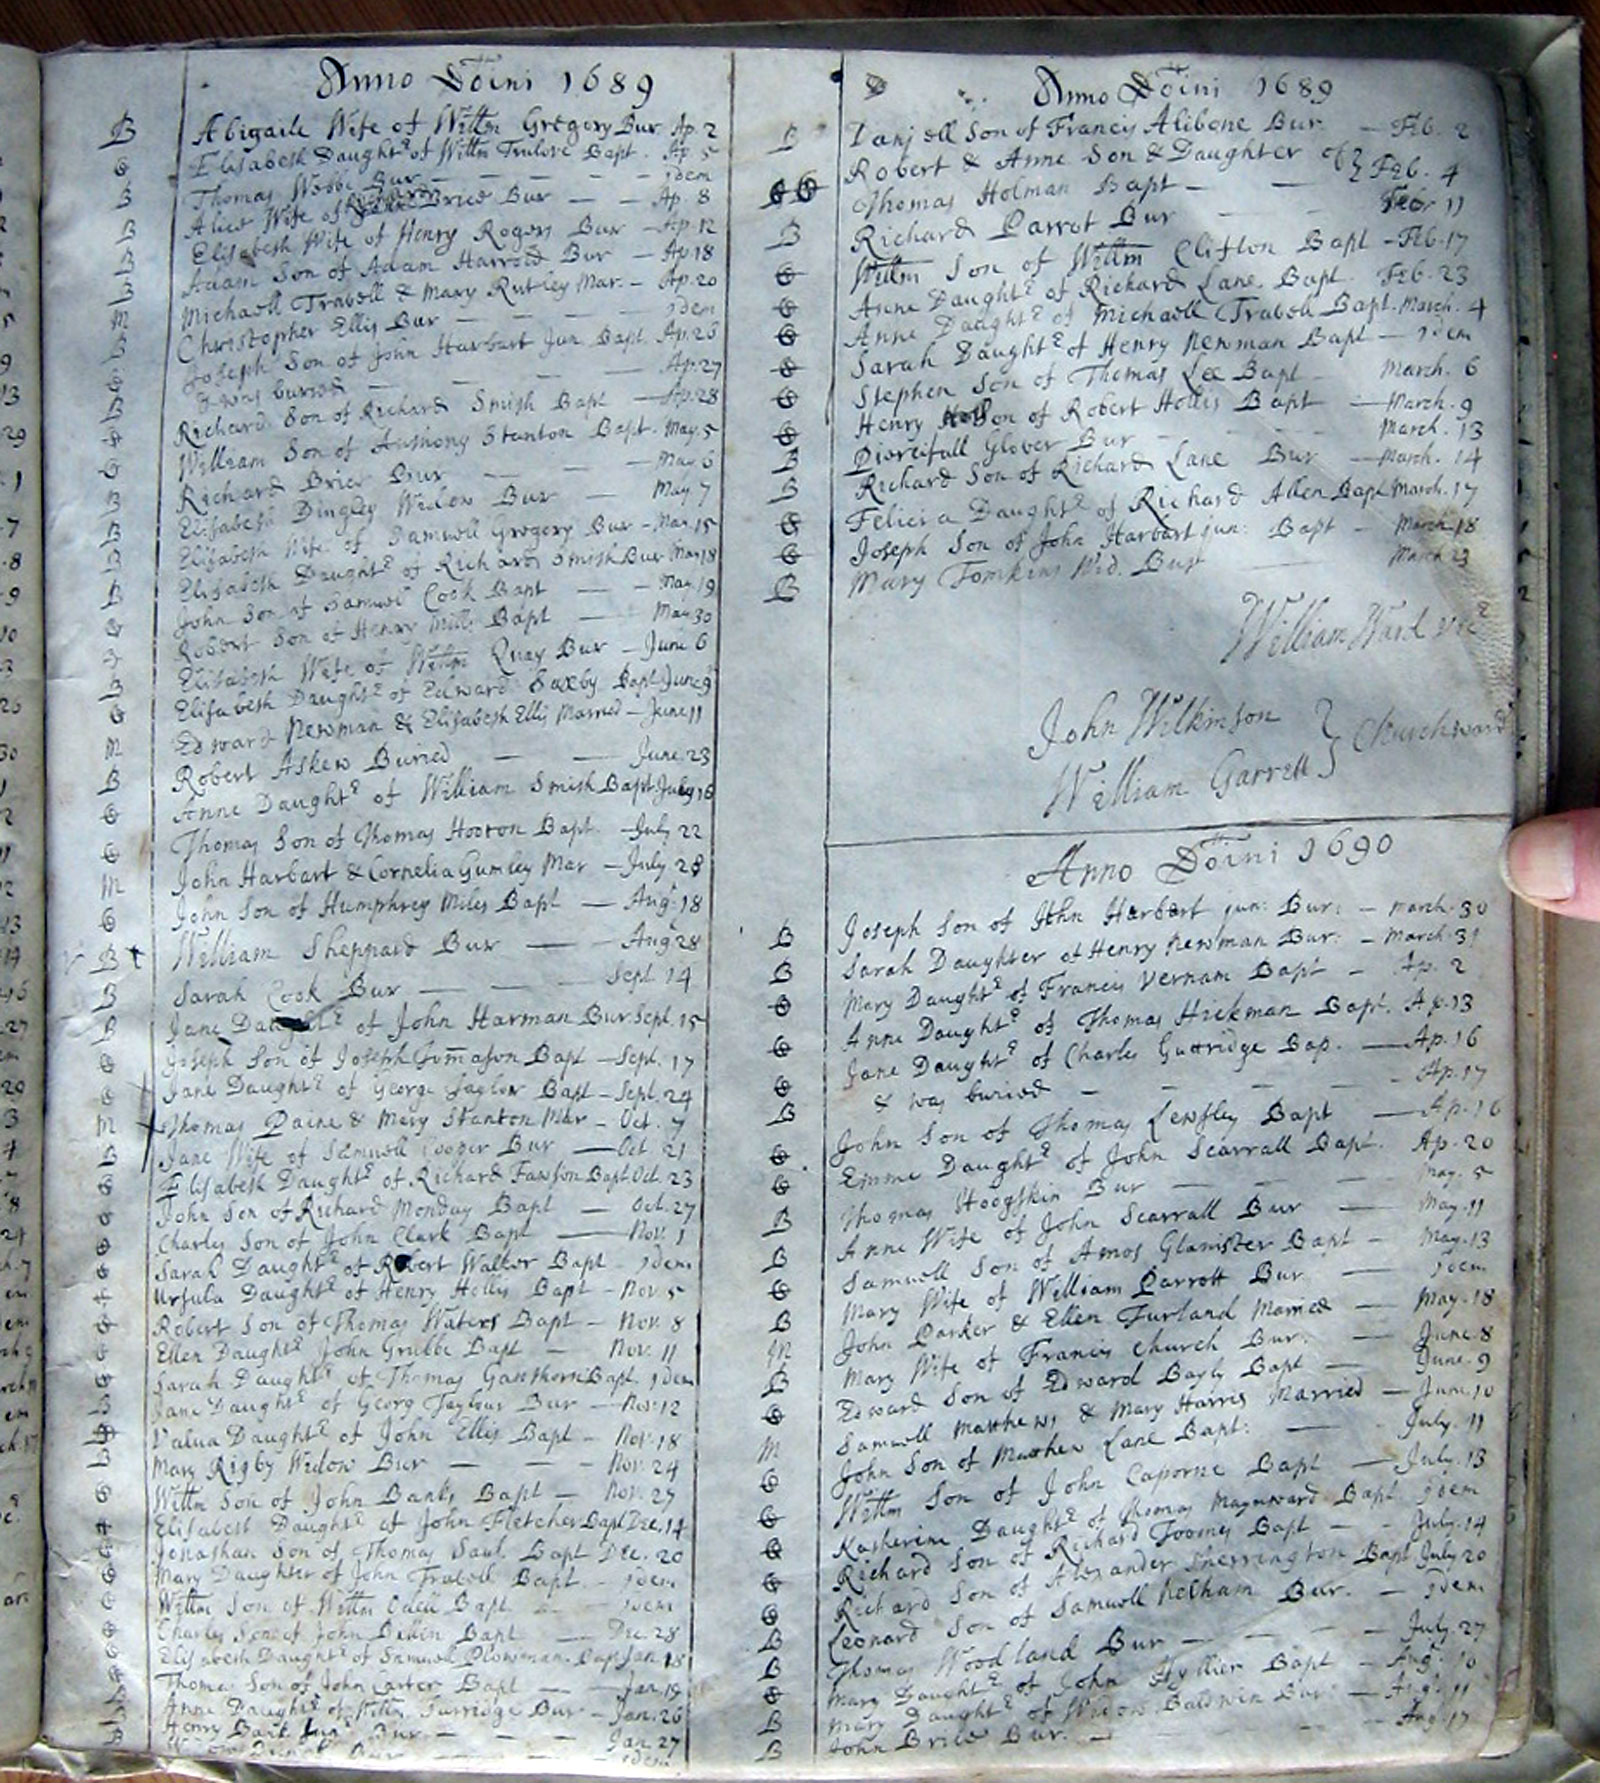 Anno Doïni 1689
B Abigaile Wife of Willm Gregory Bur Ap. 2
Elisabeth Daught.r of Willm Trulove Bapt. Ap. 5
B Thomas Webbe Bur idem
B Alice Wife of Brice Bur Ap. 8
B Elisabeth Wife of Henry Rogers Bur Ap. 12
B Adam Son of Adam Harrold Bur Ap. 18
M Michaell Trabell & Mary Rutley Mar. Ap. 20
B Christopher Ellis Bur idem
Joseph Son of John Harbart Jun Bapt. Ap. 26
B & was buried Ap. 27
Richard Son of Richard Smith Bapt Ap. 28
William Son of Anthony Stanton Bapt. May. 5
B Richard Brice Bur May 6
B Elisabeth Dingley Widow Bur May 7
B Elisabeth Wife of Samwell Gregory Bur May. 15
B Elisabeth Daught.r of Richard Smith Bur May 18
John Son of Samwel Cook Bapt May. 19
Robert Son of Henry Mills Bapt May 30
B Elisabeth Wife of Willm Quay Bur June 6
Elisabeth Daught.r of Edward Saxby Bapt June 9
M Edward Newman & Elisabeth Ellis Married June 11
B Robert Askew Buried June. 23
Anne Daught.r of William Smith Bapt July 16
Thomas Son of Thomas Hooton Bapt. July 22
M John Harbart & Cornelia Gumley Mar July 28
John Son of Humphrey Miles Bapt Aug.t 18
B William Sheppard Bur Aug.t 28
B Sarah Cook Bur Sept 14
B Jane of John Harman Bur Sept. 15
Joseph Son of Joseph Bapt Sept. 17
Jane Daught.r of George Taylor Bapt Sept. 24
M Thomas Paine & Mary Stanton Mar Oct. 7
B Jane Wife of Samwell Cooper Bur Oct 21
Elisabeth Daught.r of Richard Fawson Bapt Oct. 23
John Son of Richard Monday Bapt Oct. 27
Charles Son of John Clark Bapt Nov. 1
Sarah Daught.r of Robert Walker Bapt idem
Ursula Daught.r of Henry Hollis Bapt Nov. 5
Robert Son of Thomas Waters Bapt Nov. 8
Ellen Daught.r John Grubbe Bapt Nov. 11
Sarah Daught.r of Thomas Gawthorn Bapt. idem
B Jane Daught.r of Georg Taylour Bur Nov. 12
Valua Daught.r of John Ellis Bapt Nov. 18
B Mary Rigby Widow Bur Nov. 24
Willm Son of John Banks Bapt Nov. 27
Elisabeth Daught.r of John Fletcher Bapt Dec. 14
Jonathan Son of Thomas Saul Bapt Dec. 20
Mary Daughter of John Trabell Bapt. idem
Willm Son of Willm Bapt idem
Charles Son of John Bapt Dec. 28
Elisabeth Daught.r of Samwell Plowman Bapt Jan. 18
Thomas Son of John Carter Bapt Jan. 19
Anne Daught.r of Willm Bur Jan. 26
B Henry Bur. Jan. 27
B Bur idem
Anno Doïni 1689
B Daniell Son of Francis Alibone Bur. Feb. 2
Robert & Anne Son & Daughter of } Feb. 4
Thomas Holman Bapt
B Richard Parrot Bur 11
Willm Son of Willm Clifton Bapt Feb. 17
Anne Daught.r of Richard Lane Bapt. Feb. 23
Anne Daught.r of Michaell Trabell Bapt. March. 4
Sarah Daught.r of Henry Newman Bapt idem
Stephen Son of Thomas Lee Bapt March. 6
Henry Son of Robert Hollis Bapt March. 9
B Glover Bur March. 13
B Richard Son of Richard Lane Bur March. 14
Felicia Daught.r of Richard Allen Bapt March. 17
Joseph Son of John Harbart jun: Bapt March 18
B Mary Tomkins Wid. Bur March 23
William Ward vic.r
John Wilkinson
William Garrett } Churchward
Anno Doïni 1690
B Joseph Son of John Harbart jun: Bur: March. 30
B Sarah Daughter of Henry Newman Bur: March 31
Mary Daught.r of Francis Vernam Bapt Ap. 2
Anne Daught.r of Thomas Hickman Bapt. Ap. 13
Jane Daught.r of Charles Guttridge Bap. Ap. 16
B & was buried Ap. 17
John Son of Thomas Bapt Ap. 16
Emme Daught.r of John Scarrall Bapt. Ap. 20
B Thomas Bur May. 5
B Anne Wife of John Scarrall Bur May. 11
Samwell Son of Amos Glanister Bapt May. 13
B Mary Wife of William Parrott Bur idem
M John Parker & Ellen Furland Married May. 18
B Mary Wife of Francis Church Bur. June. 8
Edward Son of Edward Bayly Bapt June. 9
M Samwell Matthews & Mary Harris Married June. 10
John Son of Matthew Lane Bapt: July. 11
Willm Son of John Caporne Bapt July. 13
Katherine Daught.r of Thomas Maynward Bapt. idem
Richard Son of Richard Toomes Bapt July. 14
Richard Son of Alexander Sherrington Bapt July 20
B Leonard Son of Samwell Nelham Bur. idem
B Thomas Woodland Bur July. 27
Mary Daught.r of John Hyllier Bapt Aug.t 10
B Mary Daught.r of Widow Baldwin Bur: Aug.t 11
B John Brice Bur. Aug. 17